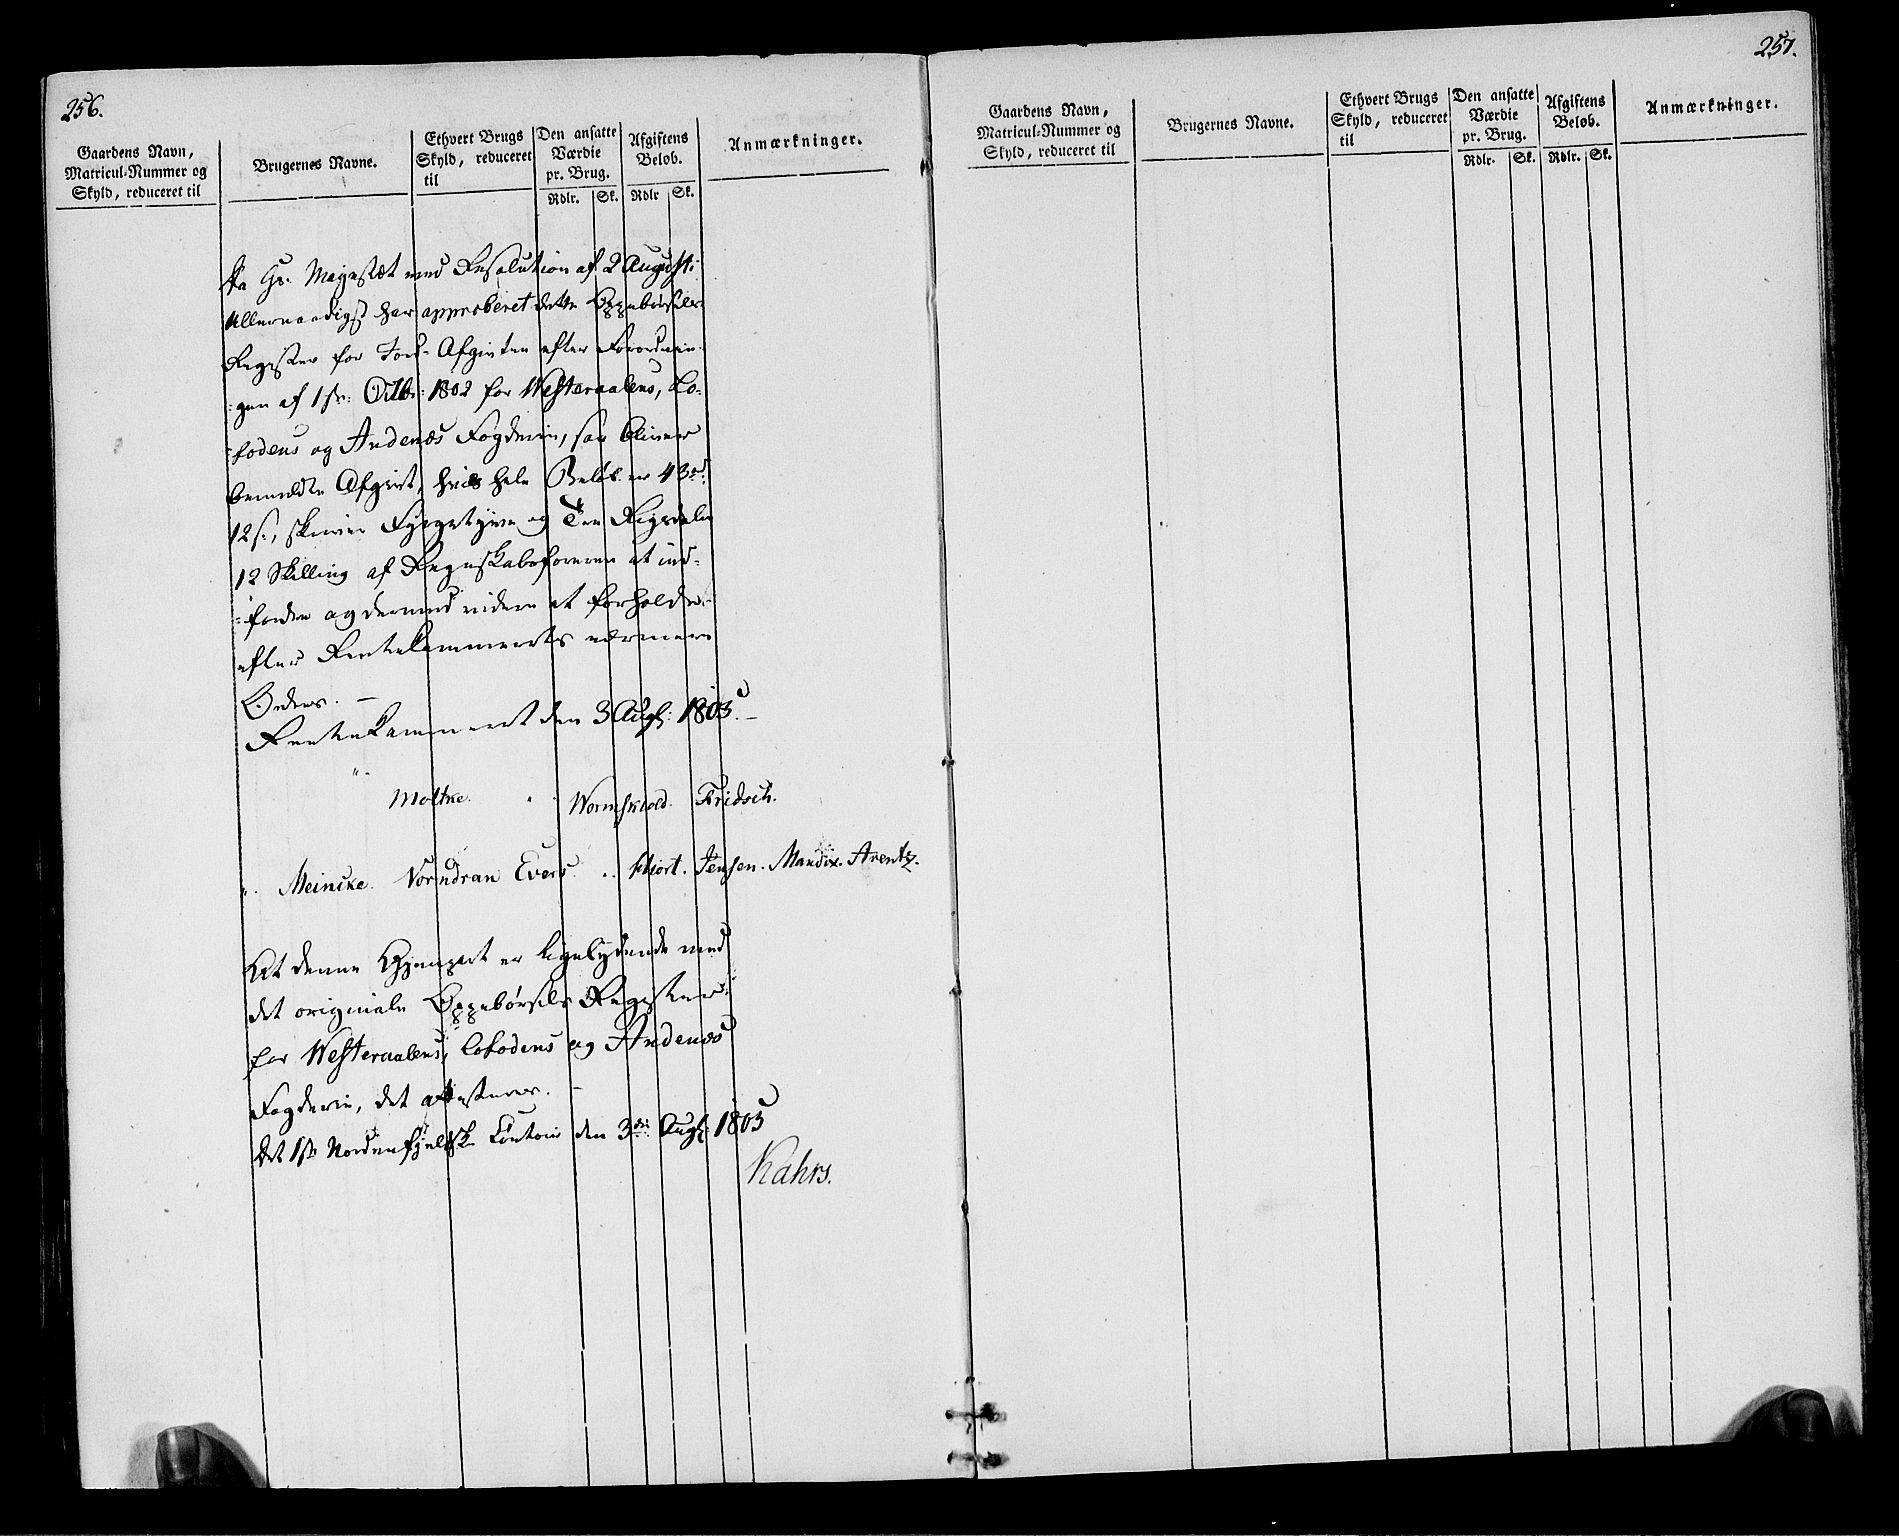 256.
Gaardens Navn,
Matricul-Nummer og
Skyld, reduceret til
Brugernes Navne.
Ethvert Brugs
Skyld, reduceret
til
Den ansatte
Værdie
pr. Brug.
Rdlr. Sk.
Afgiftens
Beløb.
Rdlr Sk.
Anmærkninger.
Hs. Mayestæt med Resolution af 2 Augusti
Allernaadigst har approberet dette Oppebørsels
Register for Jord-Afgivten efter Forordnin-
:gen af 1ste Octbr: 1802 for Westeraalens, Lo-
:fodens og Andenæs Fogderie, saa bliver
bemeldte Afgivt, hvis hele Beløb er 43rd
12s., skriver Fyrgetyve og Tre Rigsdaler
12 Skilling af Regnskabsføreren at ind-
:fordre og dermed videre at forholde
efter Rentekammerets nærmere
Ordres. —
Rentekammeret den 3 Augst: 1803. —
Moltke. Wormskiold. Fridsch.
Meincke. Vorndran Evers. Hiort. Jensen. Mandix. Arentz.
At denne Gjenpart er ligelydende med
det originale Oppebørsels Register
for Westeraalens, Lofodens og Andenæs
Fogderie, det attesteres. —
Det 1ste Nordenfjeldske Contoir den 3die Augst: 1803
Kahrs.
257.
Gaardens Navn,
Matricul-Nummer og
Skyld, reduceret til
Brugernes Navne.
Ethvert Brugs
Skyld, reduceret
til
Den ansatte
Værdie
pr. Brug.
Rdlr. Sk.
Afgiftens
Beløb.
Rdlr. Sk.
Anmærkninger.